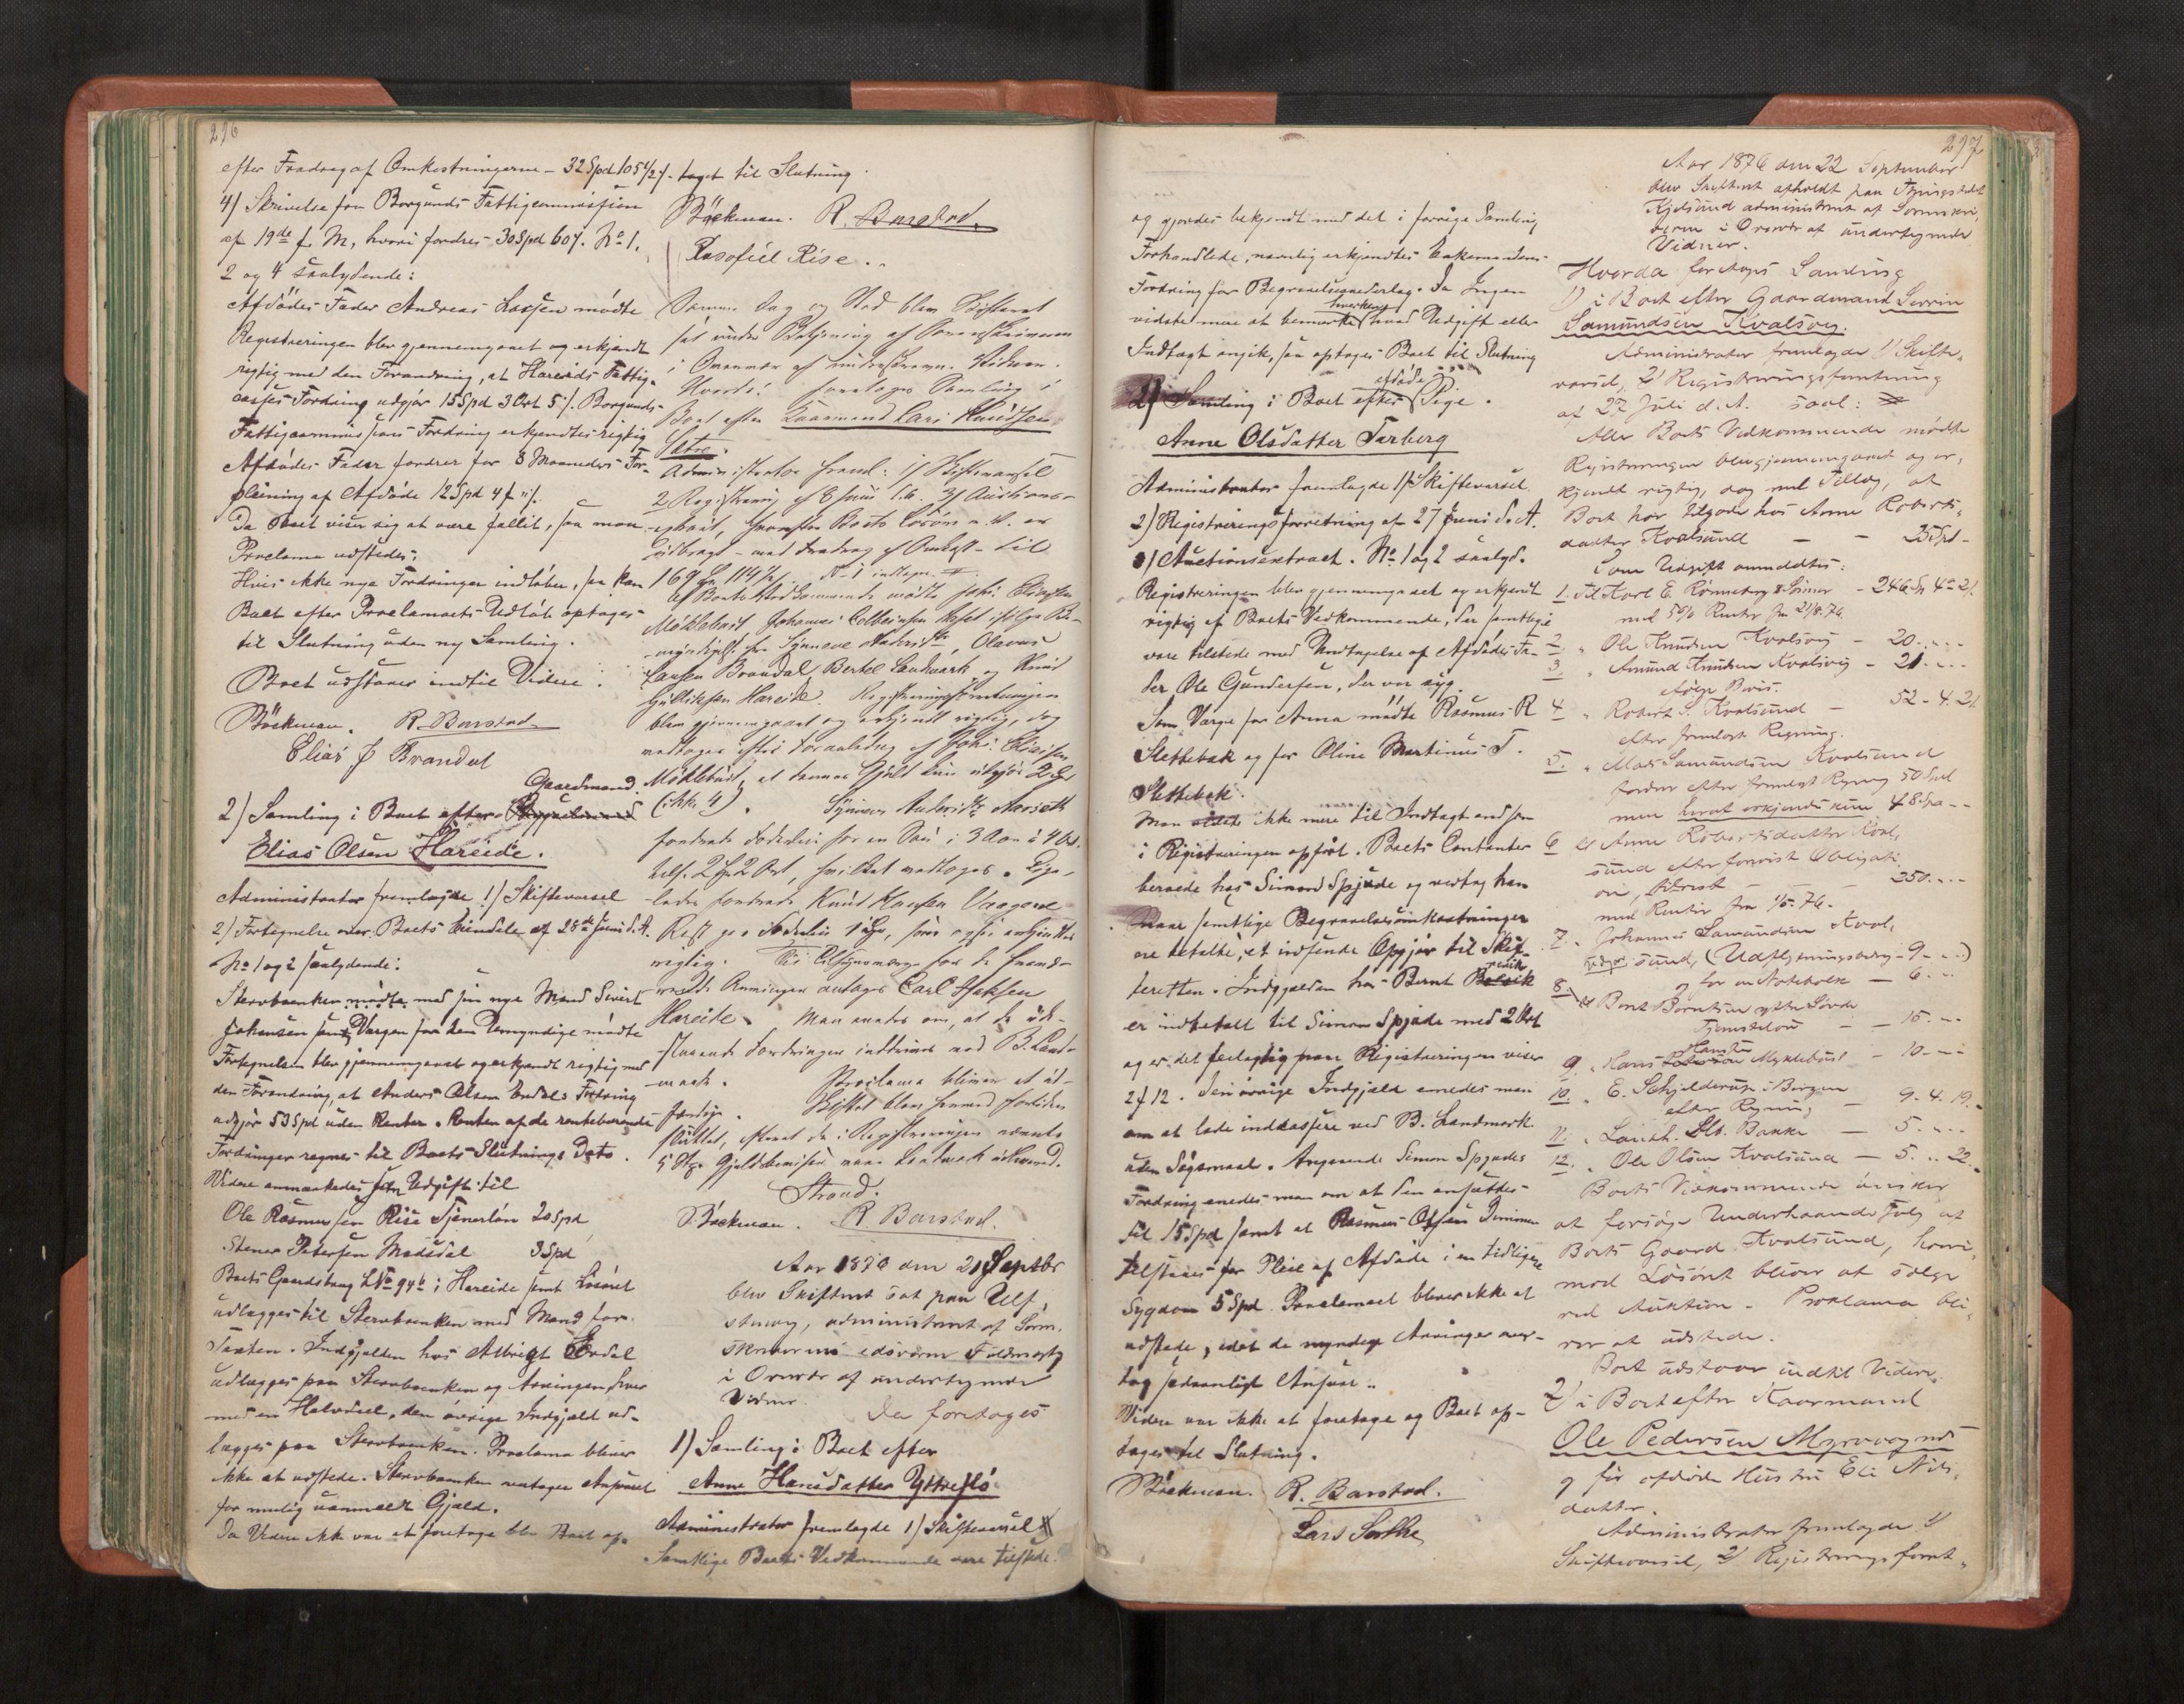 296
efter Fradrag af Omkostningerne - 32 Spd 105 1/2 ß.
4) Skrivelse fra Borgunds Fattigcommission
af 19de f. M, hvori fordres 30 Spd 60 ß. No 1.
2 og 4 saalydende:
Afdödes Fader Andreas Lassen mödte
Registreringen blev gjennemgaaet og erkjendt
rigtig med den Forandring, at Hareids Fattig-
casses Fordring udgjør 15 Spd 3 Ort 5 ß. Borgunds-
Fattigcommissions Fordring erkjendtes rigtig
Afdödes Fader fordrer for 8 Maaneders For-
pleining af Afdöde 12 Spd
Da Boet viser sig at være fallit, saa maa
Proclama udstedes.
Hvis ikke nye Fordringer indlöber, saa kan
Boet efter Proclamaets Udlöb optages
til Slutning uden ny Samling.
Boet udstaaer indtil Videre.
Böckman. R. Barstad
Elias J Brandal
Gaardmand
2) Samling i Boet efter
Elias Olsen Hareide.
Administrator fremlagde 1) Skiftevarsel
2) Fortegnelse over Boets Eiendele af 28de Juni d. A.
No 1 og 2 saalydende:
Stervboenken mödte med sin nye Mand Sivert
Johansen samt Værgen for den Umyndige mödte
Fortegnelsen blev gjennemgaaet og erkjendt rigtig med
den Forandring, at Anders Olsen Fordring
udgjør 53 Spd uden Renter. Renten af de rentebærende
Fordringer regnes til Boets Slutnings Dato.
Videre anmærkedes som Udgift til
Ole Rasmussen Rise Tjenerlön 20 Spd
Stener Petersen Madsdal 3 Spd
Boets Gaardsbrug LNo 94b i Hareide samt Lösöret
udlægges til Stervboenken med Mand for
Taxten. Indgjælden hos Albrigt
udlægges paa Stervboenken og Arvingen
med en Halvdeel, den övrige Indgjæld ud-
lægges paa Stervboenken. Proclama bliver
ikke at udstede. Stervboenken vedtager Ansvaret
for mulig uanmeldt Gjæld.
Da Videre ikke var at foretage blev Boet op-
taget til Slutning.
Böckman. R. Barstad.
Rasofiel Rise.
Samme Dag og Sted blev Skifteret
sat under Betjening af Sorenskriveren
i Overvær af underskrevne Vidner.
Hvorda: foretages Samling i
Boet efter Kaarmand Lars Knudsen
Sætre.
Administrator freml: 1) Skiftevarsel
2 Registrering af 8 Juni 3) Auctions-
Boets Lösöre
udbragt - med Fradrag af Omkost - til
169 Spd 114 1/2
Af Boets Vedkommende mödte Johs. Eliassen
Möklebust, Johannes
Olaves
Hansen Brandal, Bertel Landmark og Knud
Hareide. Registreringsforretningen
blev gjennemgaaet og erkjendt rigtig, dog
vedtoges efter Foranledning af Johs. Eliassen
Möklebust, at dennes Gjæld kun udgjør 2 Spd
(ikke 4).
fordrede Föderlön for en Sau i 3 Aar à 4 Ort.
tils. 2 Spd 2 Ort, hvilket vedtoges.
fordrede Knud Hansen
Rest 1 Spd, som ogsaa erkjendtes
rigtig.
Arvinger antages Carl Jakobsen
Hareide. Man enedes om, at de
Fordringer inddrives ved B. Land-
mark. Proclama bliver at ud-
færdige. Skiftet blev herved foreløbig
sluttet, efterat de i Registreringen nævnte
5 Stkr Gjældsbeviser vare Landmark udleveret.
Strand.
Böckman. R. Barstad.
Aar 1876 den 21 Septbr
blev Skifteret sat paa Ulf-
stenvig, administreret af Soren-
skriverens edsvorne Fuldmægtig
i Overvær af undertegnede
Vidner. Da foretoges
1) Samling i Boet efter
Anne Hansdatter Yttreflö
Administrator fremlagde 1) Skiftevarsel
Samtlige Boets Vedkommende vare tilstede.
297
og gjordes bekjendt med det i forrige Samling
Forhandlede, navnlig erkjendtes Enkemandens
Fordring for Begravelsesudlæg. Da Ingen
vidste mere at bemærke hverken hvad Udgift eller
Indtægt angik, saa optages Boet til Slutning
2) Samling i Boet efter afdöde Pige
Anne Olsdatter Tarberg
Administrator fremlagde 1) Skiftevarsel.
2) Registreringsforretning af 27 Juni d. A.
3) Auctionsextract. No 1 og 2 saalyd.
Registreringen blev gjennemgaaet og erkjendt
rigtig af Boets Vedkommende, der samtlige
vare tilstede med Undtagelse af Afdödes Fa-
der Ole Gundersen, der var syg.
Som Værge for Anna mödte Rasmus R
Slettebak og for Oline Martinus T.
Slettebak.
Man ikke mere til Indtægt end som
i Registreringen opført. Boets Contanter
beroede hos Simon Spjude og vedtog han
naar samtlige Begravelsesomkostninger
ere betalte, at indsende Opgjør til Skif-
teretten. Indgjælden hos Bernt
er indbetalt til Simon Spjude med 2 Ort
og er det feilagtig naar Registreringen viser
2 ß 12. Den övrige Indgjæld enedes man
om at lade indcassere ved B. Landmark
uden Sögsmaal. Angaaende Simon Spjudes
Fordring enedes man om at den ansættes
til 15 Spd samt at Rasmus Olsen
tilstaaes for Pleie af Afdöde i en tidligere
Sygdom 5 Spd. Proclamaet bliver ikke at
udstede, idet de myndige Arvinger over-
tog sædvanligt Ansvar.
Videre var ikke at foretage og Boet op-
tages til Slutning.
Böckman. R. Barstad.
Lars Sæthe
Aar 1876 den 22 September
blev Skifteret afholdt paa Thingstedet
Kjelsund administreret af Sorenskri-
veren i Overvær af undertegnede
Vidner.
Hvorda foretages Samling
1) i Boet efter Gaardmand Severin
Samundsen Kvalsvig.
Administrator fremlagde 1) Skifte-
varsel, 2) Registreringsforretning
af 27 Juli d. A. saal:
Alle Boets Vedkommende mødte
Registreringen blev gjennemgaaet og er-
kjendt rigtig, dog med Tillæg, at
Boet har tilgode hos Anne Roberts-
datter Kvalsund - - 35 Spd -
Som Udgift anmeldtes:
1. Til Karl E. Rønneberg & Sønner - 246 Sp 4 - 21.
med 5% Renter fra 21/8. 76.
2. " Ole Knudsen Kvalsvig - 20. - -
3. " Amund Knudsen Kvalsvig - 21. - -
ifølge Bevis.
4 " Robert S. Kvalsund - 52 - 4. 21
efter fremlagt Regning.
5. " Mads Samundsen Kvalsund
fordrer efter fremlagt Regning 50 Spd
men hvoraf erkjendes kun 48 Spd - -
6 til Anne Robertsdatter Kval-
sund efter forevist Obligati-
on, - 250. - -
med Renter fra 1/5. 76.
7. " Johannes Samundsen Kval-
sund, (Udskiftningsomk - 9 - - -)
og for en Notebolk - 6. - -
8. til Bernt Berntsen ytre Løvde
Tjenesteløn - - 15. - -
9. " Hans Hansen Myklebust - 10. - -
10. " E. Schjelderup i Bergen
efter Regning - 9. 4. 19.
11. " Laurits Banke - 5. - -
12. " Ole Olsen Kvalsund - 5. .. 22.
Boets Vedkommende ønsker
at forsøge Underhaands Salg af
Boets Gaard Kvalsund, hvori-
mod Løsøret bliver at sælge
ved Auktion - Proklama bli-
ver at udstede.
Boet udstaar indtil Videre.
2) i Boet efter Kaarmand
Ole Pedersen Myrvaagnes
og før afdøde Hustru Eli Nils-
datter.
Administrator fremlagde 1)
Skiftevarsel, 2) Registreringsforret-